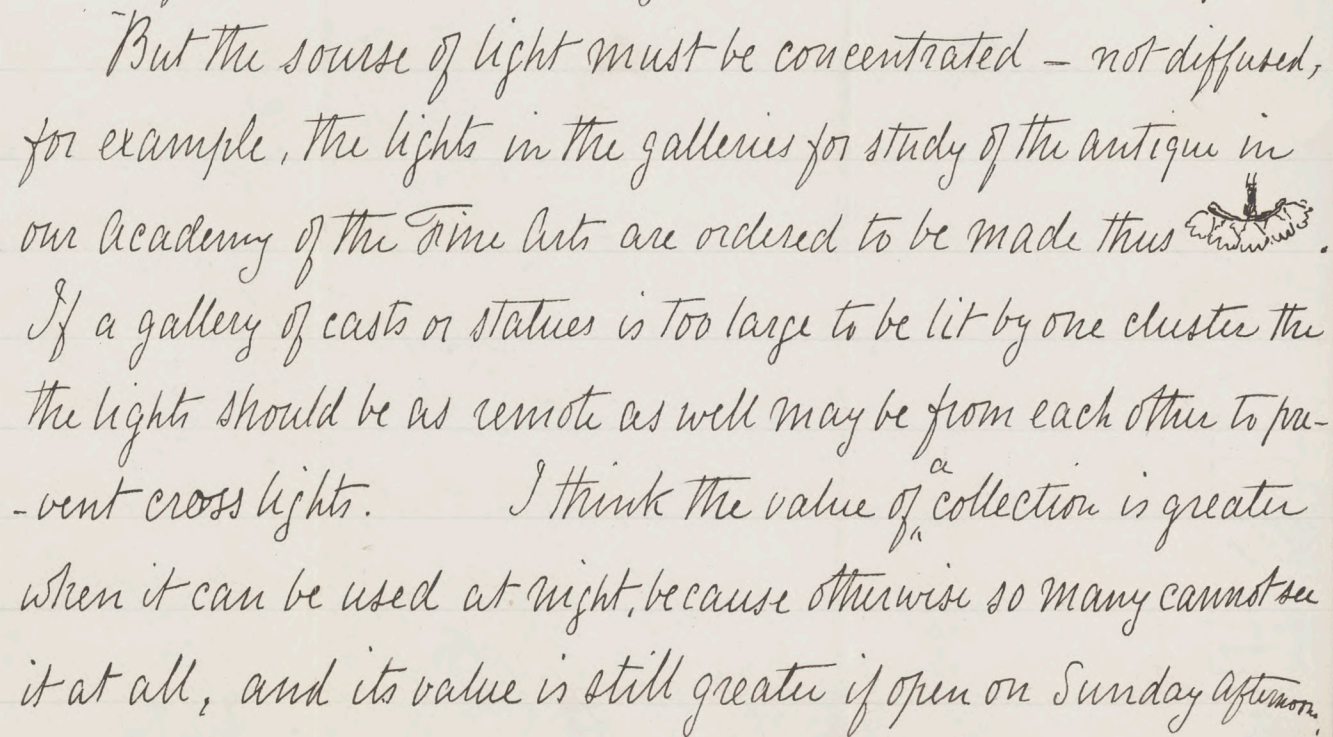 But the sourse of light must be concentrated – not diffused,
for example, the lights in the galleries for study of the antique in
our Academy of the Fine Arts are ordered to be made thus .
If a gallery of casts or statues is too large to be lit by one cluster the
the lights should be as remote as well may be from each other to pre-
-vent cross lights. I think the value of a collection is greater
when it can be used at night, because otherwise so many cannot see
it at all, and its value is still greater if open on Sunday Afternoon.